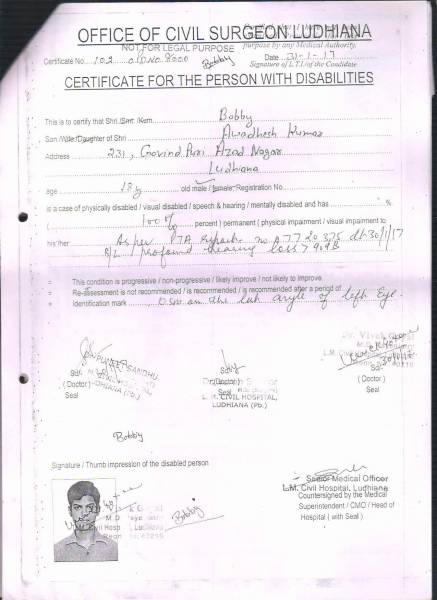 OFFICE OF CIVIL SURGEON LUDHIANA
NOT FOR LEGAL PURPOSE
purpose by any Medical Authority.
Certificate No. 102 Bobby Date 31-1-17
Signature of L.T.I. of the Candidate
CERTIFICATE FOR THE PERSON WITH DISABILITIES
This is to certify that Shri /Smt. /Kum. Bobby
Son /Wife/Daughter of Shri Awadhesh Kumar
Address 231, Govind Puri Azad Nagar
Ludhiana
age 18y old male / female, Registration No
is a case of physically disabled / visual disabled / speech & hearing / mentally disabled and has %
( 100% percent ) permanent ( physical impairment / visual impairment to
his/her As per PTA no A7720375 dt. 30/1/17
B/L profound hearing loss > 90dB
= This condition is progressive / non-progressive / likely improve / not likely to improve.
= Re-assessment is not recommended / is recommended / is recommended after a period of
= Identification mark on the angle of left Eye.
PUNEET SANDHU
Sd/-
( Doctor )
Seal
LUDHIANA (Pb.)
Sd/-
L. M. CIVIL HOSPITAL,
LUDHIANA (Pb.)
Dr. Vivek Goyal
Sd/-
( Doctor )
Seal
Bobby
Signature / Thumb impression of the disabled person
Senior Medical Officer
L.M. Civil Hospital, Ludhiana
Countersigned by the Medical
Superintendent / CMO / Head of
Hospital ( with Seal )
Bobby